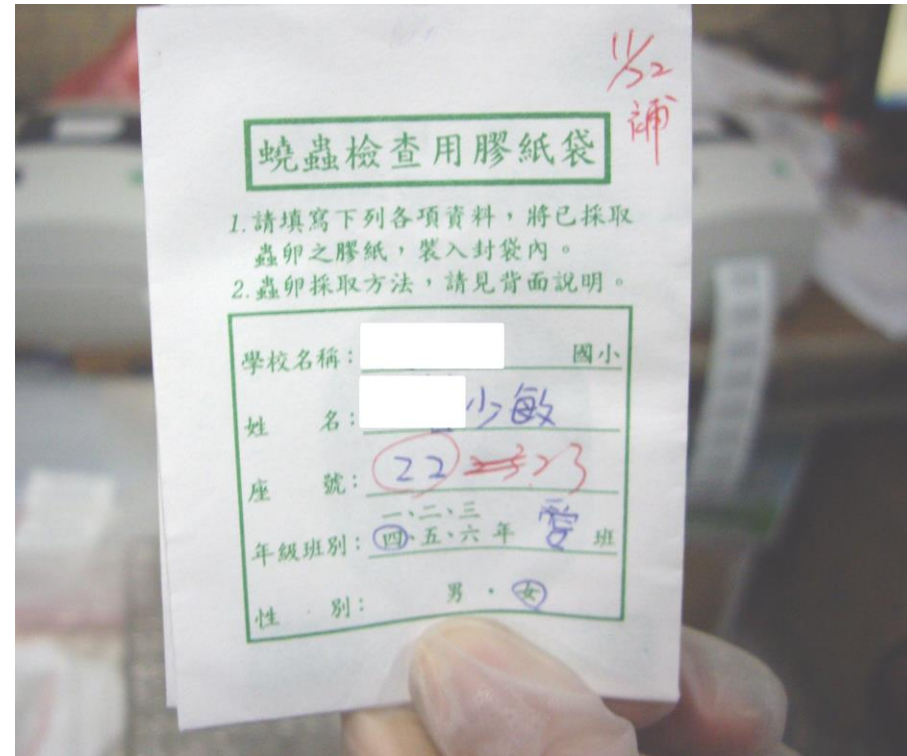 11/22
補
蟯蟲檢查用膠紙袋
1.請填寫下列各項資料，將已採取
蟲卵之膠紙，裝入封袋內。
2.蟲卵採取方法，請見背面說明。
學校名稱： 國小
姓 名： 小敏
座 號：22 23
一、二、三
年級班別：四、五、六 年 愛 班
性 別： 男 · 女